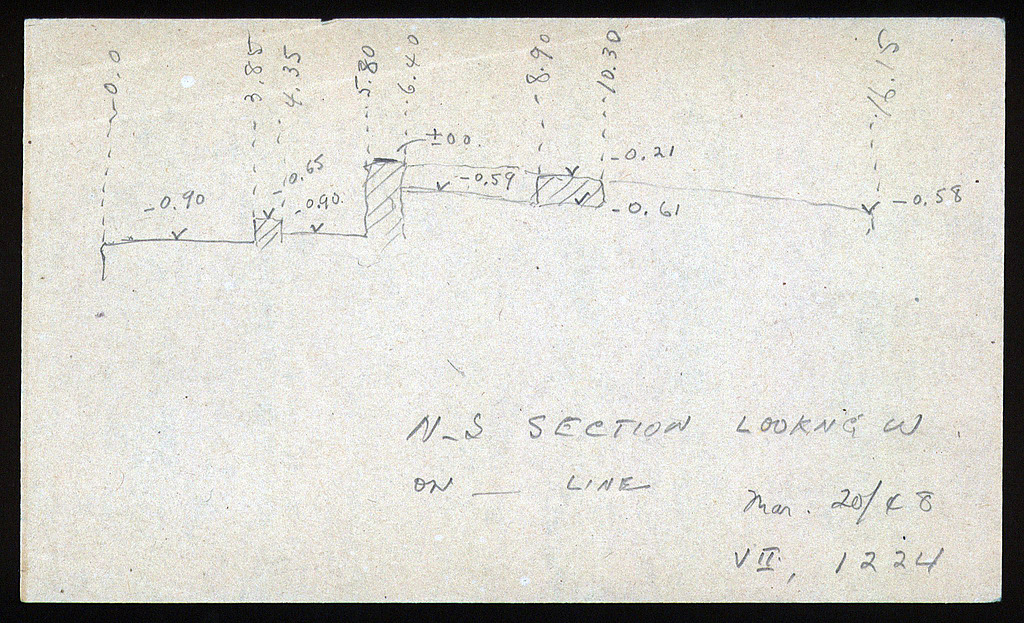 0.0
3.85
4.35
5.80
6.40
8.90
10.30
16.15
±00.
-0.21
-0.65
-0.59
-0.90
-0.90.
-0.58
-0.61
N-S SECTION LOOKNG W
ON __ LINE
Mar. 20/48
VII, 1224